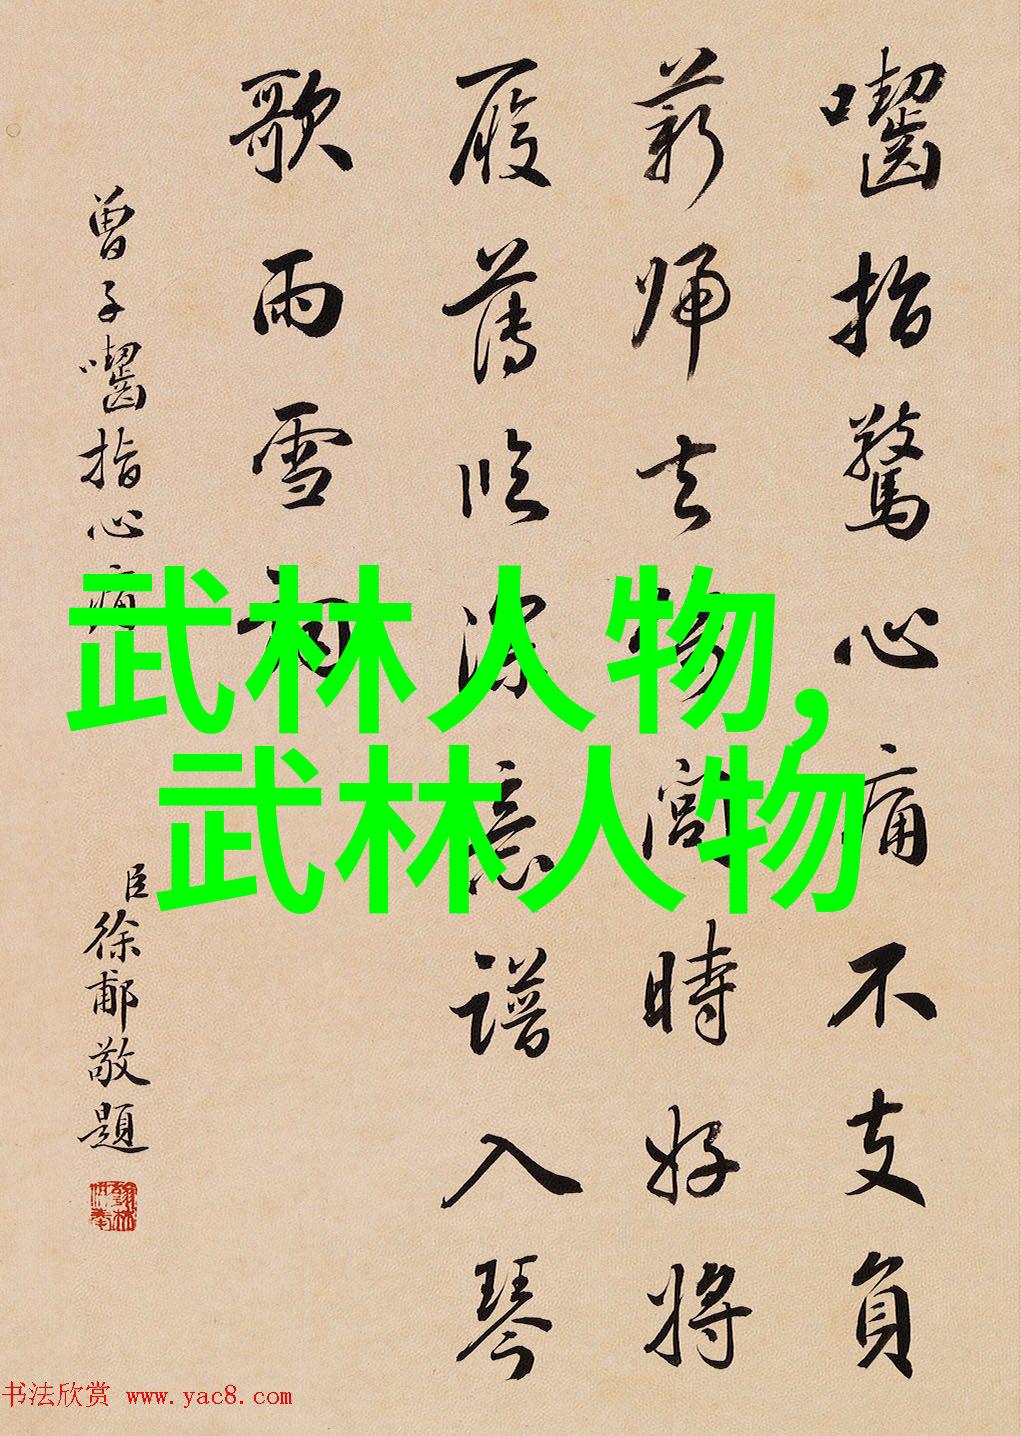 囓指驚心痛不支負
薪歸去時好將
履薄臨深意譜入琴
歌雨雪
曾子囓指心痛
臣徐郙敬題
武林人物,
武林人物
书法欣赏 www.yac8.com